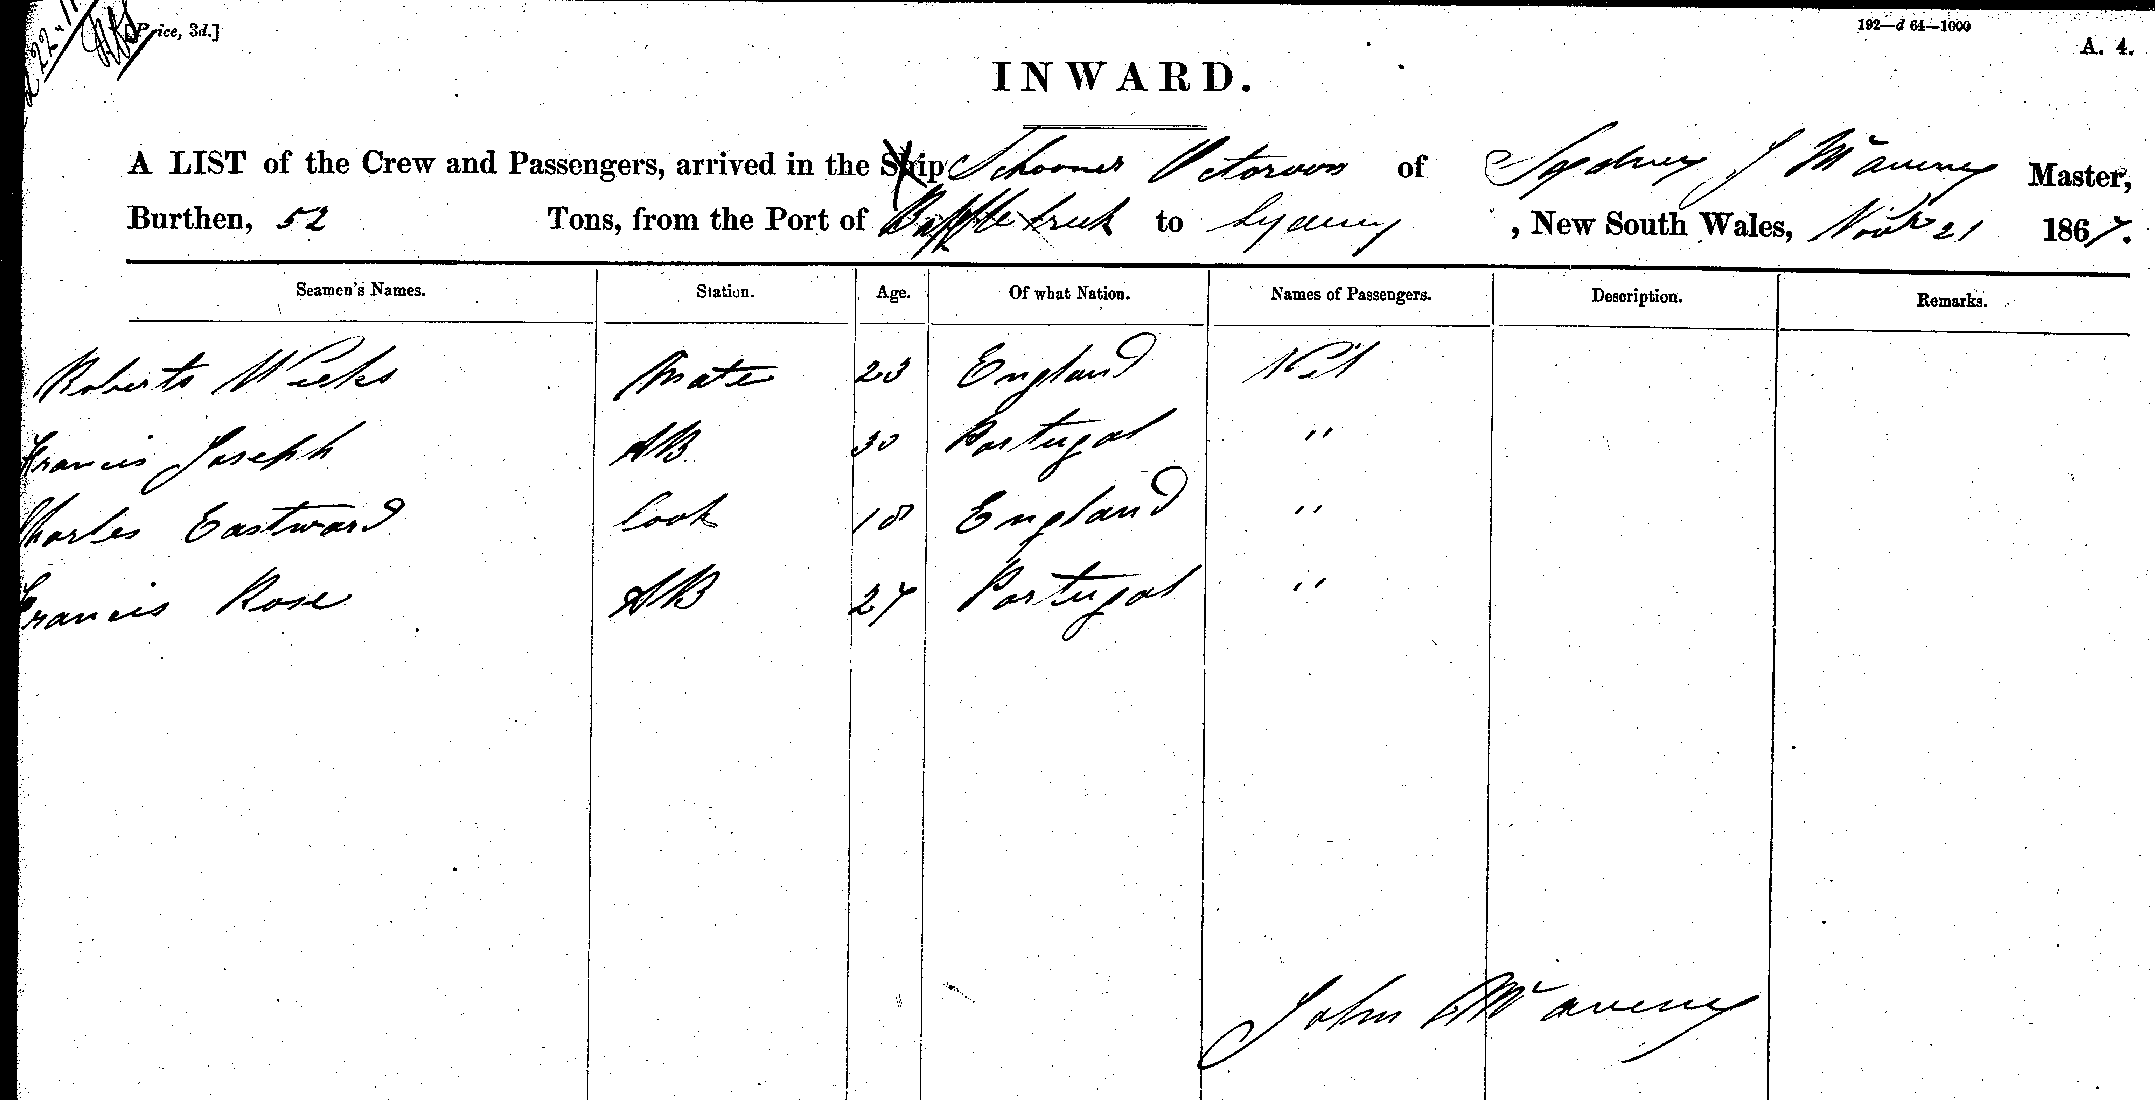 22.11
[Price, 3d.]
192—d 64—1000
A. 4.
INWARD.
A LIST of the Crew and Passengers, arrived in the Ship Schooner Octoroon of Sydney J McAveney Master,
Burthen, 52 Tons, from the Port of Baffle Creek to Sydney, New South Wales, Novbr 21 1867.
Seamen's Names. Station. Age. Of what Nation. Names of Passengers. Description. Remarks.
Roberts Weeks Mate 23 England Nil
Francis Joseph AB 30 Portugal "
Charles Eastward Cook 18 England "
Francis Rose AB 27 Portugal "
John McAveney